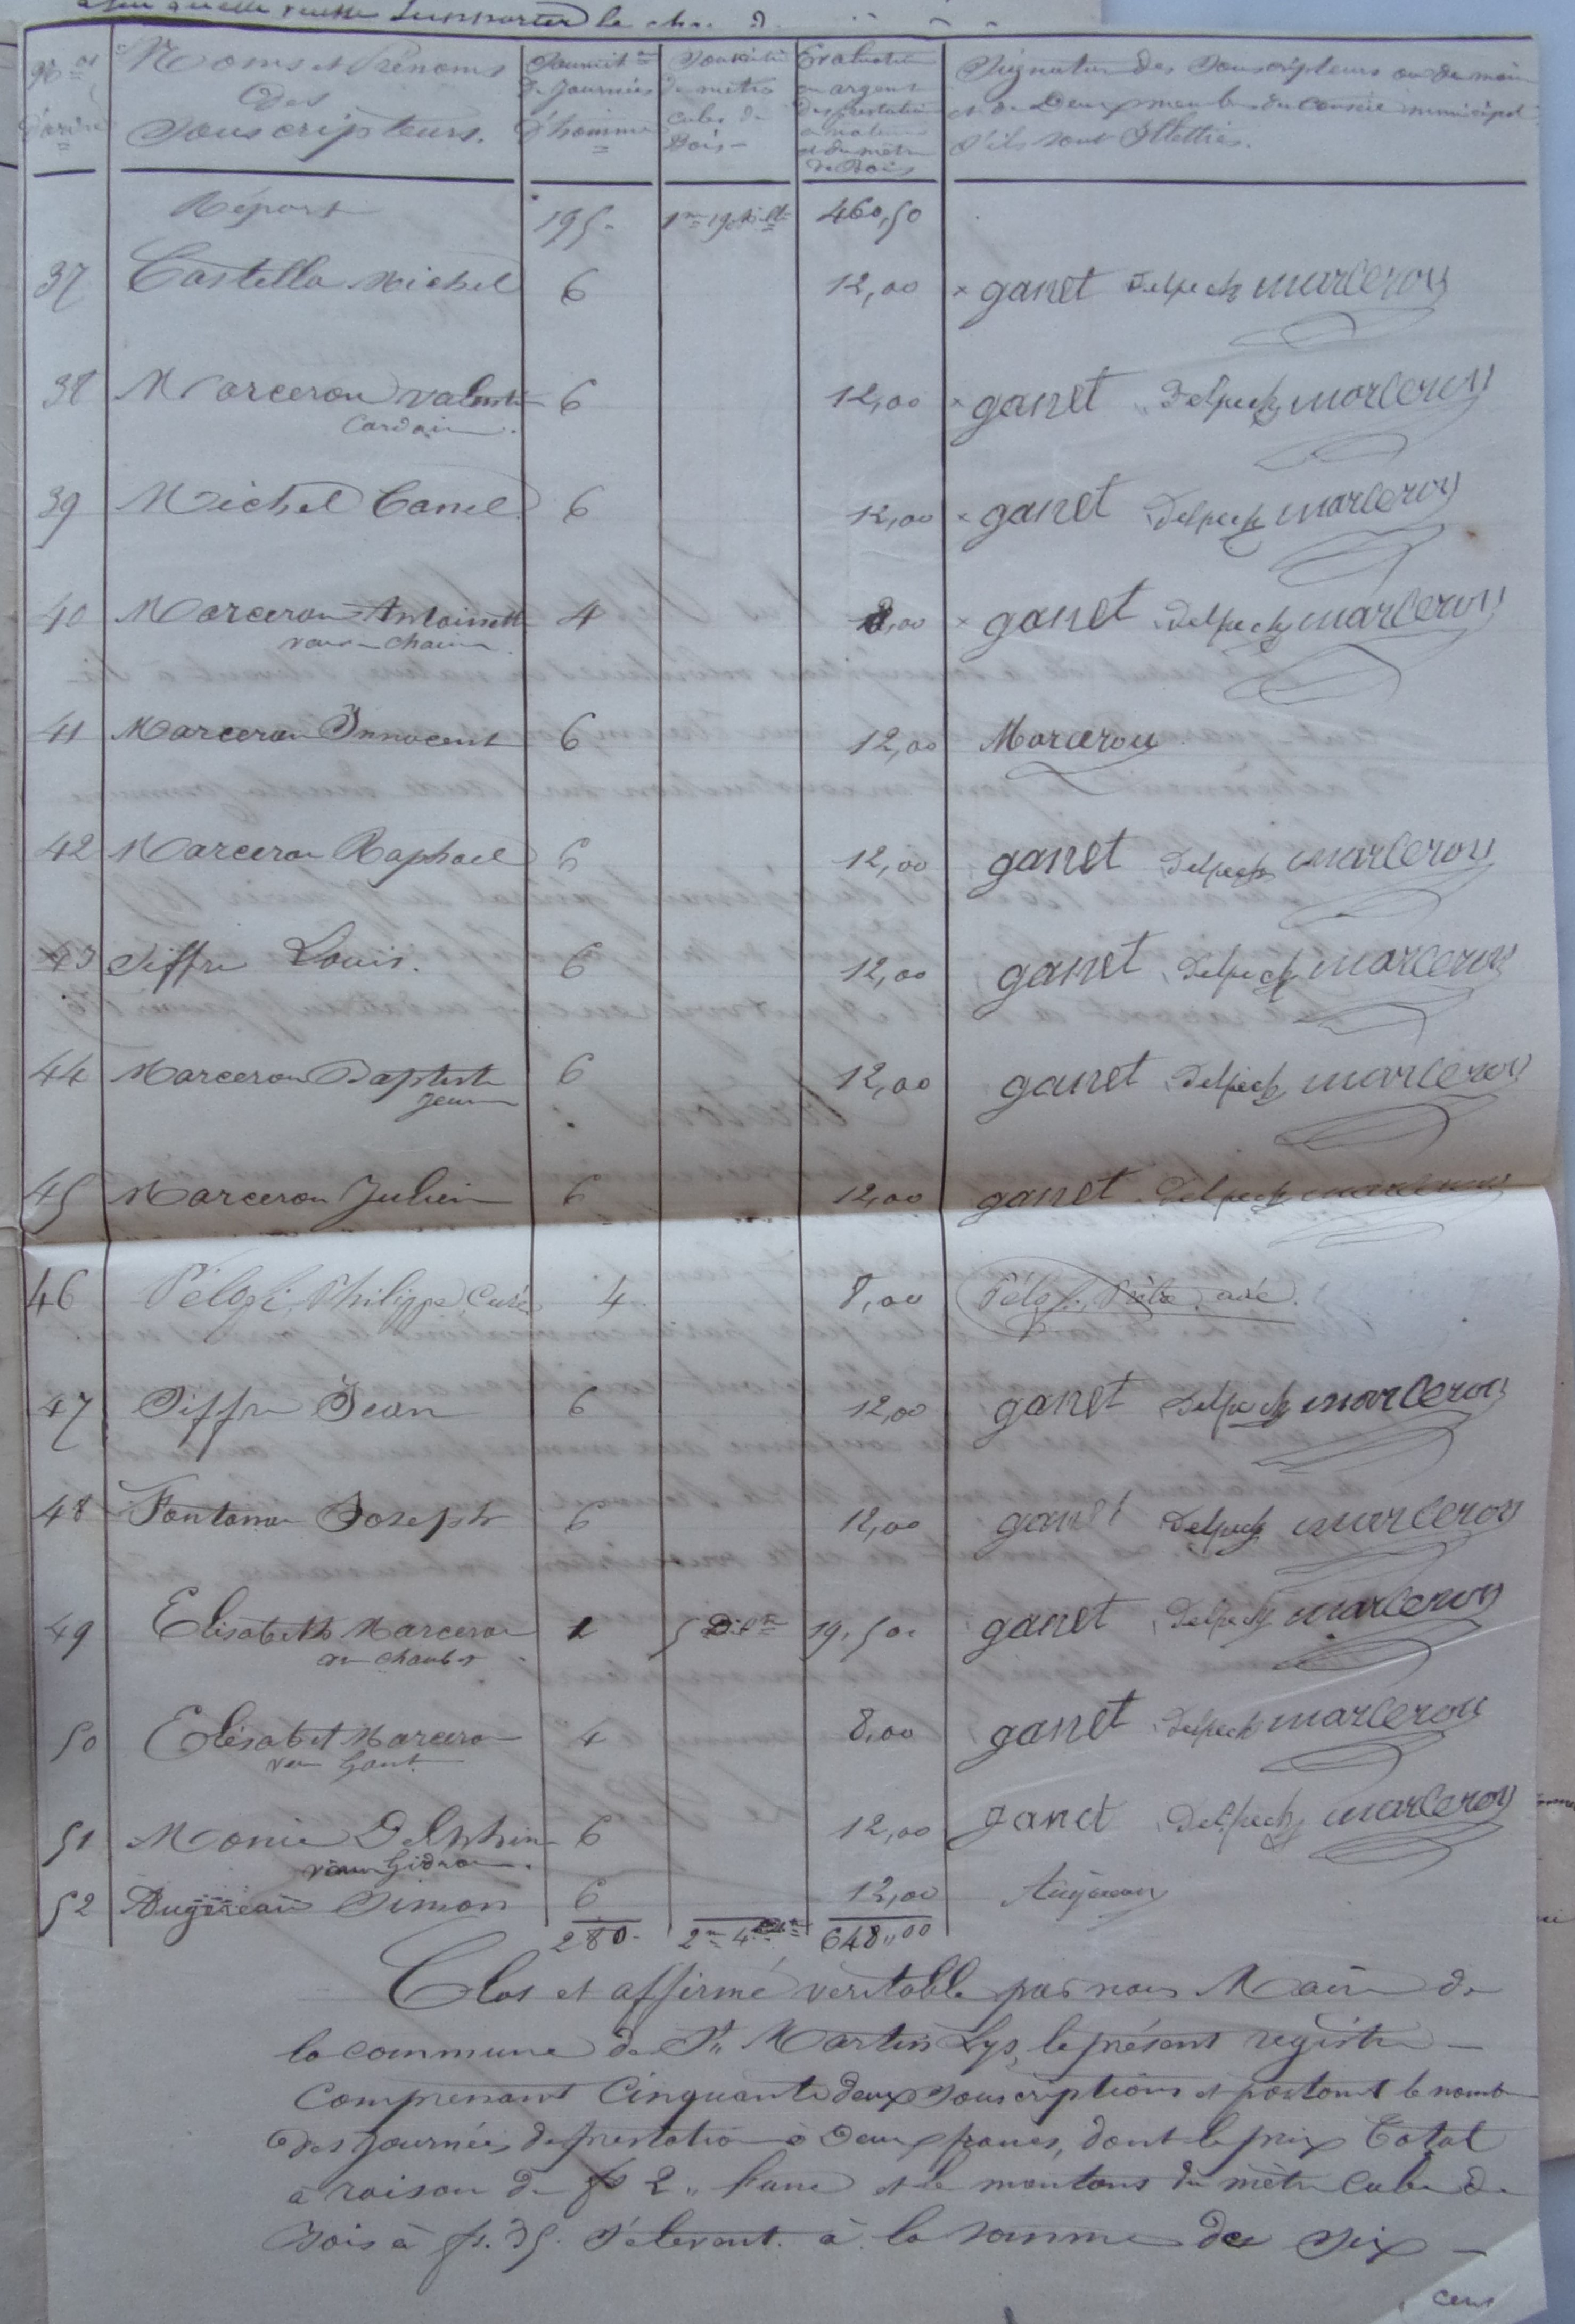 supporter le
Nos d'ordre | Noms et Prénoms des Souscripteurs. | Journées d'homme | de mètres cubes de Bois | Evaluation en argent des prestations et du mètre de Bois | Signature des Souscripteurs ou du maire et de Deux membres du Conseil municipal s'ils sont Illettrés.
Réport 195. 460,50
37 Castella Michel 6 12,00 × ganet Delpech marcerou
38 Marcerou Valentin 6 12,00 × ganet Delpech marcerou
39 Michel Canel 6 12,00 × ganet Delpech marcerou
40 Marcerou Antoinette 4 8,00 × ganet Delpech marcerou
41 Marcerou Innocent 6 12,00 Marcerou
42 Marcerou Raphael 6 12,00 ganet Delpech marcerou
43 Siffre Louis. 6 12,00 ganet Delpech marcerou
44 Marcerou Baptiste 6 12,00 ganet Delpech marcerou
jeune
45 Marcerou Julien 6 12,00 ganet Delpech marcerou
46 Philippe Curé 4 8,00 curé
47 Siffre Jean 6 12,00 ganet Delpech marcerou
48 Fontanau Joseph 6 12,00 ganet Delpech marcerou
49 Elisabeth Marcerou 5 19,50 ganet Delpech marcerou
50 Elisabet Marcerou 4 8,00 ganet Delpech marcerou
51 Delphine 6 12,00 ganet Delpech marcerou
52 Augereau Simon 6 12,00 Augereau
280. 2m 4 648,00
Clos et affirmé veritable par nous Maire de
la commune de St Martin Lys, le présent registre
comprenant Cinquante deux souscriptions et portant le nombre
des journées de prestation à Deux francs, dont le prix Total
a raison de f 2 " l'une et le montant du mètre Cube de
Bois à f. 35. s'élevant. à la somme de Six
cent